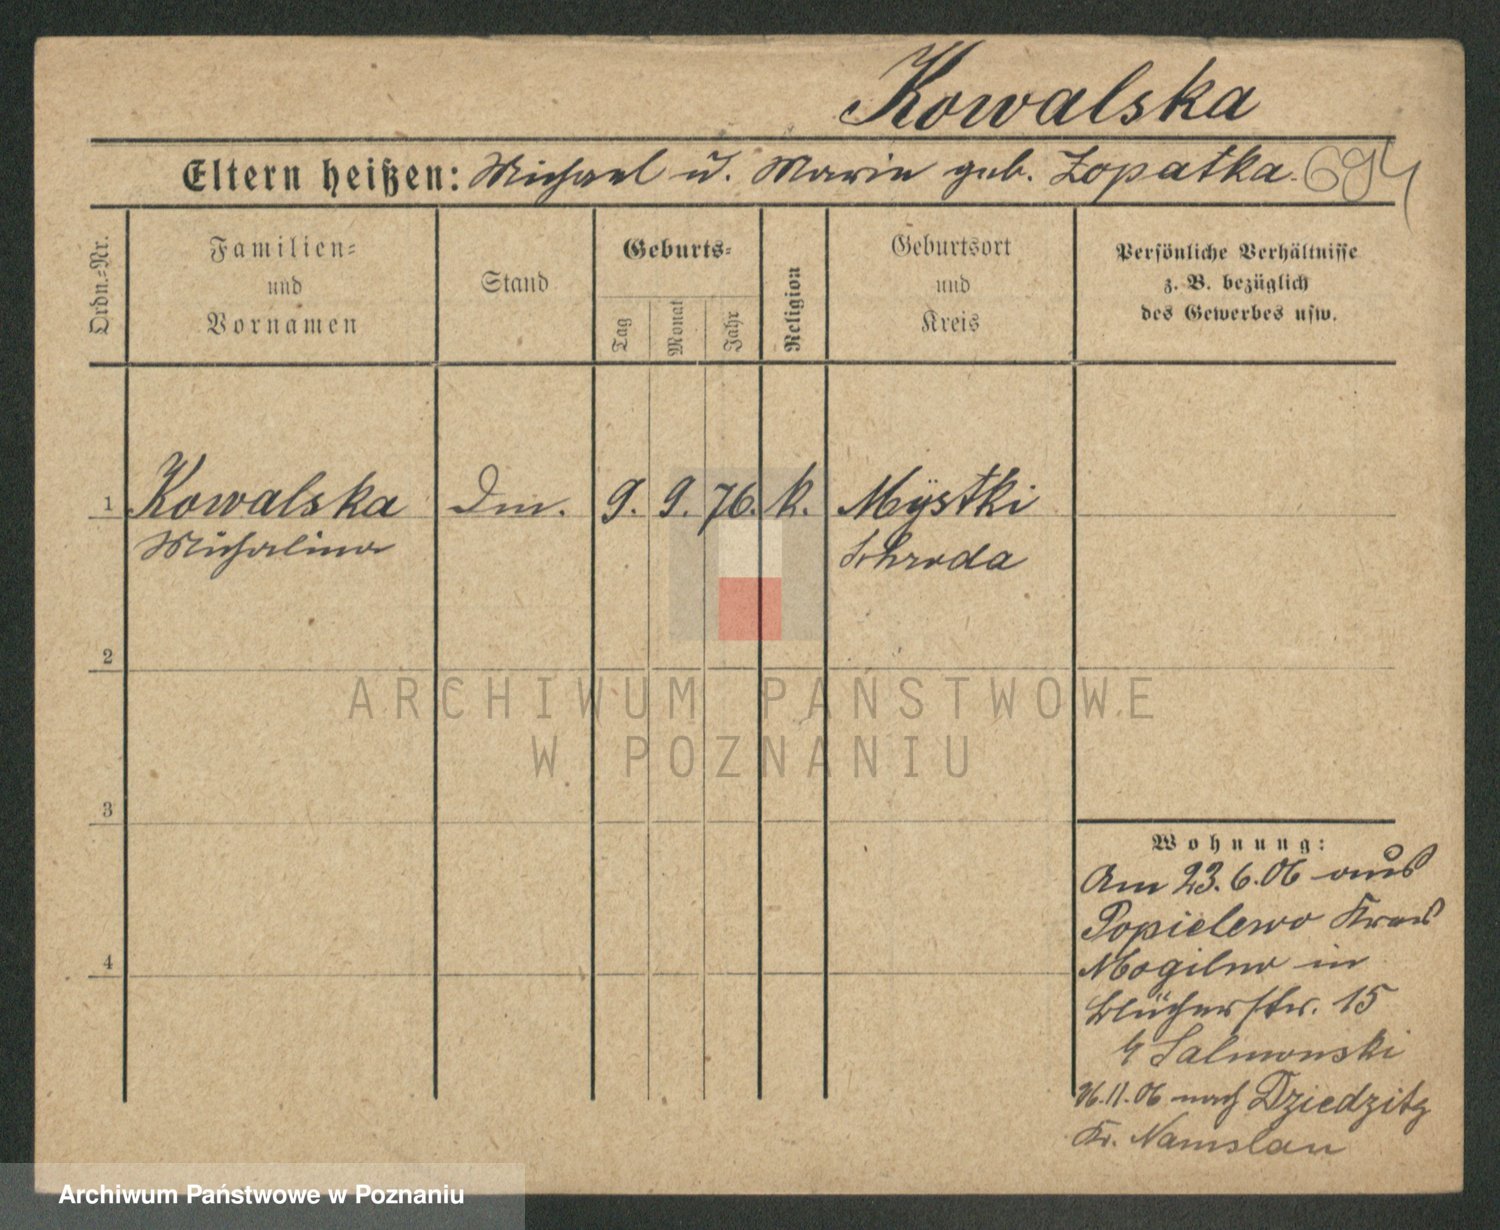 Kowalska
Eltern heißen: Michael u. Maria geb. Lopatka. 694
Ordn.-Nr.
Familien-
und
Vornamen
Stand
Geburts-
Tag
Monat
Jahr
Religion
Geburtsort
und
Kreis
Persönliche Verhältnisse
z. B. bezüglich
des Gewerbes usw.
1 Kowalska 9. 9. 76. k. Mystki
Michalina Schroda
2
ARCHIWUM PAŃSTWOWE
W POZNANIU
3
Wohnung:
Am 23.6.06 aus
Popielewo Kreis
Mogilno in
4
Blücherstr. 15
Salmonski
26.11.06 nach Dziedzitz
Kr. Namslau
Archiwum Państwowe w Poznaniu